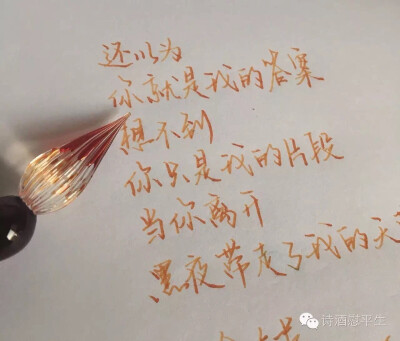 还以为
你就是我的答案
想不到
你只是我的片段
当你离开
黑夜带走了我的天
诗酒慰平生